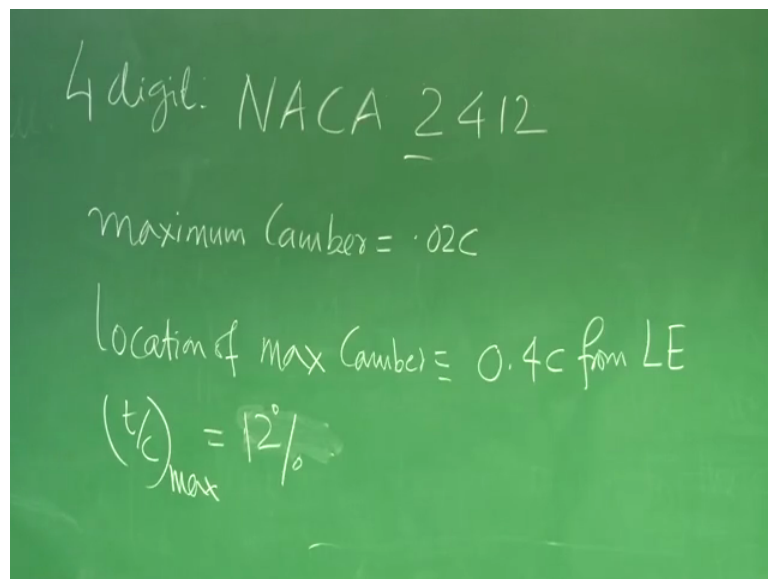 4 digit: NACA 2412
maximum Camber = .02C
Location of max Camber = 0.4c from LE
(t/c)max = 12%